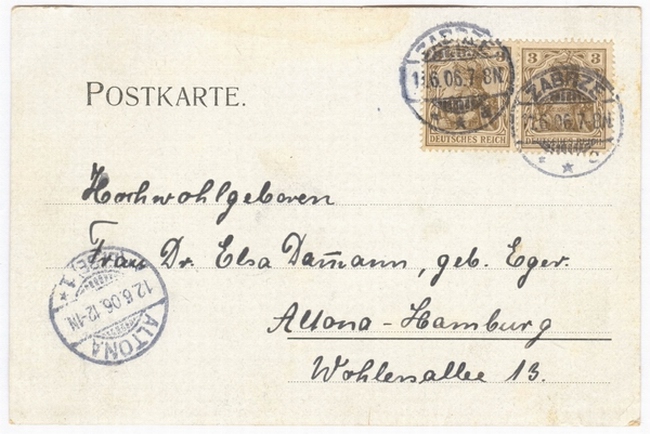 POSTKARTE.
ZABRZE
11.6.06.7-8N.
3
DEUTSCHES REICH
3
DEUTSCHES REICH
ZABRZE
11.6.06.7-8N.
Hochwohlgeboren
Frau Dr. Elsa Dam̄ann, geb. Eger.
Altona-Hamburg
Wohlersallee 13.
12.6.06.12-1N
1
ALTONA